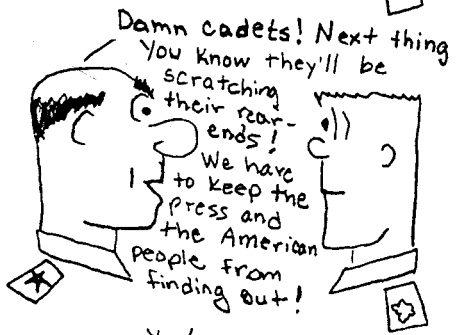 Damn cadets! Next thing
you know they'll be
scratching
their rear-
ends!
We have
to keep the
press and
the American
people from
finding out!